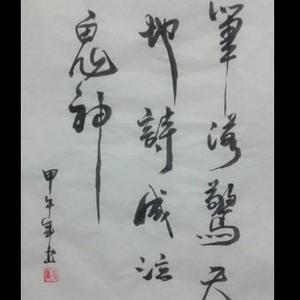 筆落驚天
地詩成泣
鬼神
甲午年